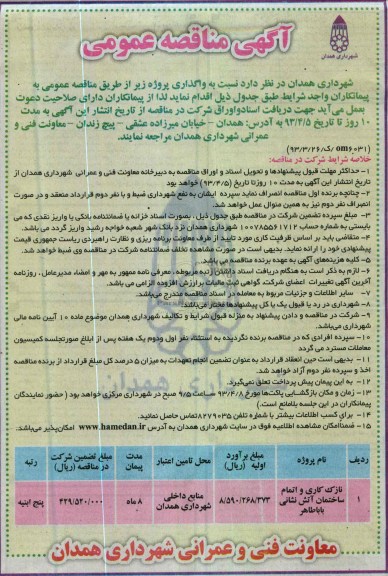 شهرداری همدان
آگهی مناقصه عمومی
شهرداری همدان در نظر دارد نسبت به واگذاری پروژه زیر از طریق مناقصه عمومی به
پیمانکاران واجد شرایط طبق جدول ذیل اقدام نماید لذا از پیمانکاران دارای صلاحیت دعوت
بعمل می‌آید جهت دریافت اسناد و اوراق شرکت در مناقصه از تاریخ انتشار این آگهی به مدت
۱۰ روز تا تاریخ ۹۳/۴/۵ به آدرس: همدان - خیابان میرزاده عشقی - پیچ زندان - معاونت فنی و
عمرانی شهرداری همدان مراجعه نمایند.
خلاصه شرایط شرکت در مناقصه:
۱- حداکثر مهلت قبول پیشنهادها و تحویل اسناد و اوراق مناقصه به دبیرخانه معاونت فنی و عمرانی شهرداری همدان از
تاریخ انتشار این آگهی به مدت ۱۰ روز تا تاریخ (۹۳/۴/۵) خواهد بود
۲- چنانچه برنده اول مناقصه انصراف نماید سپرده ایشان به نفع شهرداری ضبط و با نفر دوم قرارداد منعقد و در صورت
انصراف نفر دوم نیز به همین منوال عمل خواهد شد.
۳- مبلغ سپرده تضمین شرکت در مناقصه طبق جدول ذیل، بصورت اسناد خزانه یا ضمانتنامه بانکی یا واریز نقدی که می
بایستی به شماره حساب ۱۰۰۷۸۵۵۶۱۷۱۲ شهرداری همدان نزد بانک شهر شعبه خواجه رشید واریز گردد می باشد.
۴- متقاضی باید بر اساس ظرفیت کاری مورد تایید از طرف معاونت برنامه ریزی و نظارت راهبردی ریاست جمهوری قیمت
پیشنهادی خود را ارائه نماید. بدیهی است در صورت مشاهده تخلف ضمانتنامه شرکت در مناقصه وی ضبط خواهد شد.
۵- کلیه هزینه‌های آگهی به عهده برنده مناقصه می باشد.
۶- لازم به ذکر است به هنگام دریافت اسناد داشتن رتبه مربوطه، معرفی نامه ممهور به مهر و امضاء مدیرعامل، روزنامه
آخرین آگهی تغییرات اعضای شرکت، گواهی ثبت مالیات بر ارزش افزوده الزامی می باشد.
۷- سایر اطلاعات و جزئیات مربوط به معامله در اسناد مناقصه مندرج می‌باشد.
۸- شهرداری در رد یا قبول یک یا کل پیشنهادها مختار می باشد.
۹- شرکت در مناقصه و دادن پیشنهاد به منزله قبول شرایط و تکالیف شهرداری همدان موضوع ماده ۱۰ آیین نامه مالی
شهرداری می‌باشد.
۱۰- سپرده افرادی که در مناقصه برنده نگردیده به استثناء نفر اول و دوم یک هفته پس از ابلاغ صورتجلسه کمیسیون
معاملات مسترد می گردد
۱۱- بدیهی است حین انعقاد قرارداد به عنوان تضمین انجام تعهدات به میزان ۵ درصد کل مبلغ قرارداد از برنده مناقصه
اخذ و سپرده نفر دوم آزاد خواهد شد.
۱۲- به این پیمان پیش پرداخت تعلق نمی‌گیرد.
۱۳- زمان و مکان بازگشایی پاکت‌ها مورخ ۹۳/۴/۸ ساعت ۹/۵ صبح در شهرداری مرکزی خواهد بود (حضور نمایندگان
پیمانکاران در این جلسه بلامانع است.)
۱۴- برای کسب اطلاعات بیشتر با شماره تلفن ۸۲۷۹۰۳۵ تماس حاصل نمائید.
۱۵- ضمناً امکان مشاهده اطلاعیه فوق در سایت شهرداری همدان به آدرس www.hamedan.ir امکان‌پذیر می‌باشد.
ردیف نام پروژه مبلغ برآورد اولیه (ریال) محل تامین اعتبار مدت پیمان مبلغ تضمین شرکت در مناقصه (ریال) رتبه
۱ نازک کاری و اتمام ساختمان آتش نشانی باباطاهر ۸/۵۹۰/۲۶۸/۳۷۳ منابع داخلی شهرداری همدان ۸ ماه ۴۲۹/۵۲۰/۰۰۰ پنج ابنیه
معاونت فنی و عمرانی شهرداری همدان